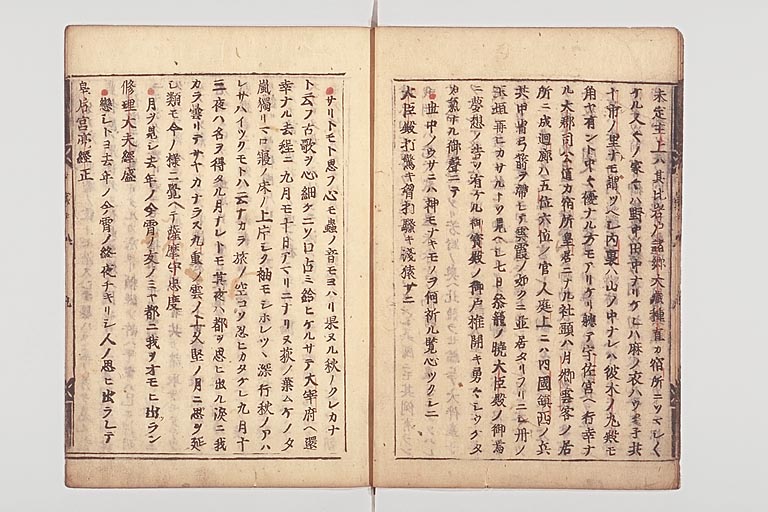 未定主上ハ其比岩戸ノ諸郷大蔵種直カ宿所ニソマシ〱
ケル人々ノ家々ハ野中田中ナリケレハ麻ノ衣ハウタネ共
十市ノ里トモ謂ツヘシ内裏ハ山ノ中ナレハ彼木ノ丸殿モ
角ヤ有ント中々優ナル方モアリケリ軈テ宇佐宮ヘ行幸ナ
ル大郡司公道カ宿所皇居ニナル社頭ハ月卿雲客ノ居
所ニ成廻廊ハ五位六位ノ官人庭上ニハ四國鎮西ノ兵
共甲冑弓箭ヲ帯モテ雲霞ノ如クニ並居タリフリニシ丹ノ
玉垣再ヒカサルトソ見ヘシ七日参籠ノ曉大臣殿ノ御為
ニ夢想ノ告ソ有ケル御寳殿ノ御戸推開キ勇々シクケタ
カ氣ナル御聲ニテ
世中ノウサニハ神モナキモノヲ何祈ル覧心ツクシニ
大臣殿打驚キ胸打騒キ浅猿サニ
サリトモト思フ心モ蟲ノ音モヨハリ果ヌル秋ノクレカナ
ト云フ古歌ヲ心細ケニソ口占ミ給ヒケルサテ大宰府ヘ還
幸ナル去程ニ九月モ十日アマリニナリヌ荻ノ葉ムケノタ
嵐獨リマロ寢ノ床ノ上片シク袖モシホレツヽ深行秋ノアハ
レサハイツクモトハ云ナカラ旅ノ空コソ忍ヒカタケレ九月十
三夜ハ名ヲ得タル月ナレトモ其夜ハ都ヲ思ヒ出ル涙ニ我
カラ曇リテサヤカナラス九重ノ雲ノ上久堅ノ月ニ思ヲ延
シ類モ今ノ様ニ覺ヘテ薩摩守忠度
月ヲ見シ去年ノ今宵ノ友ノミヤ都ニ我ヲオモヒ出ラン
修理大夫經盛
戀シトヨ去年ノ今宵ノ終夜チキリシ人ノ思ヒ出ラレテ
皇后宮亮經正